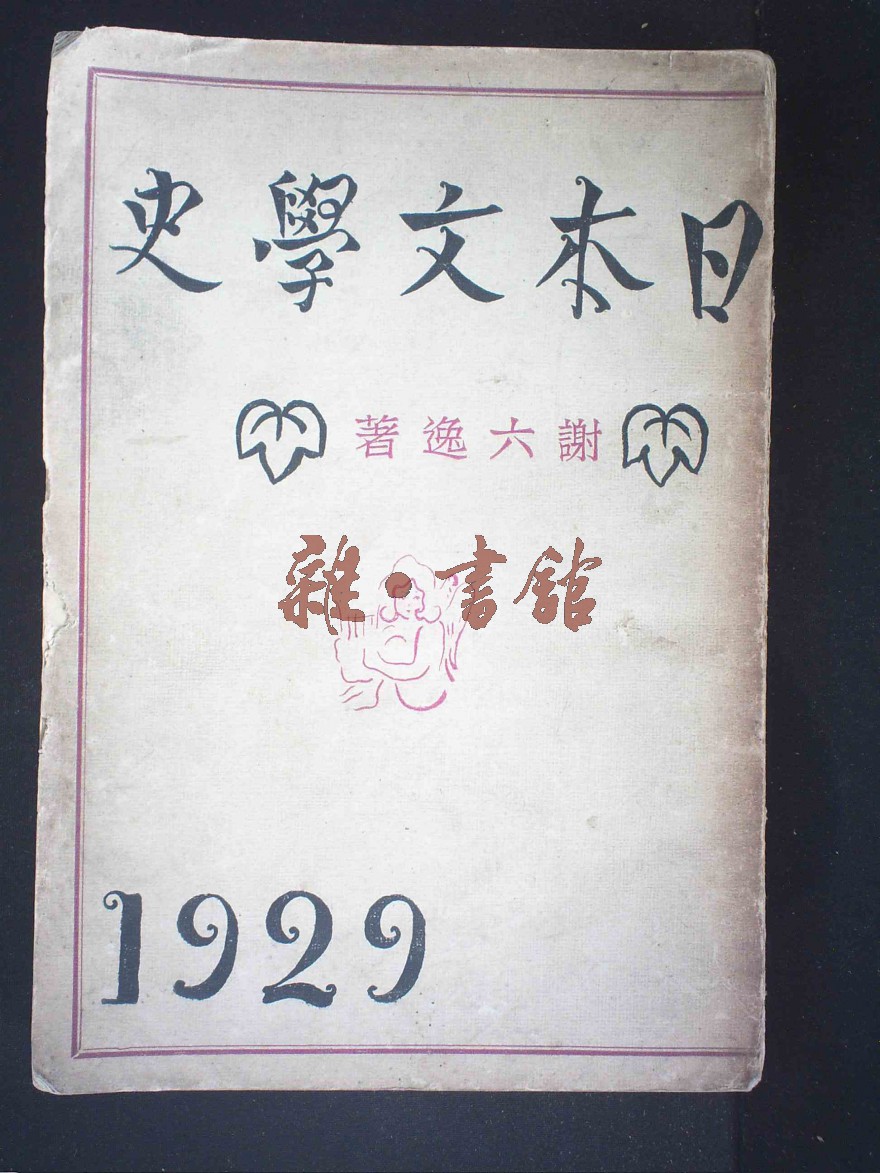 日本文學史
謝六逸著
雜·書館
1929